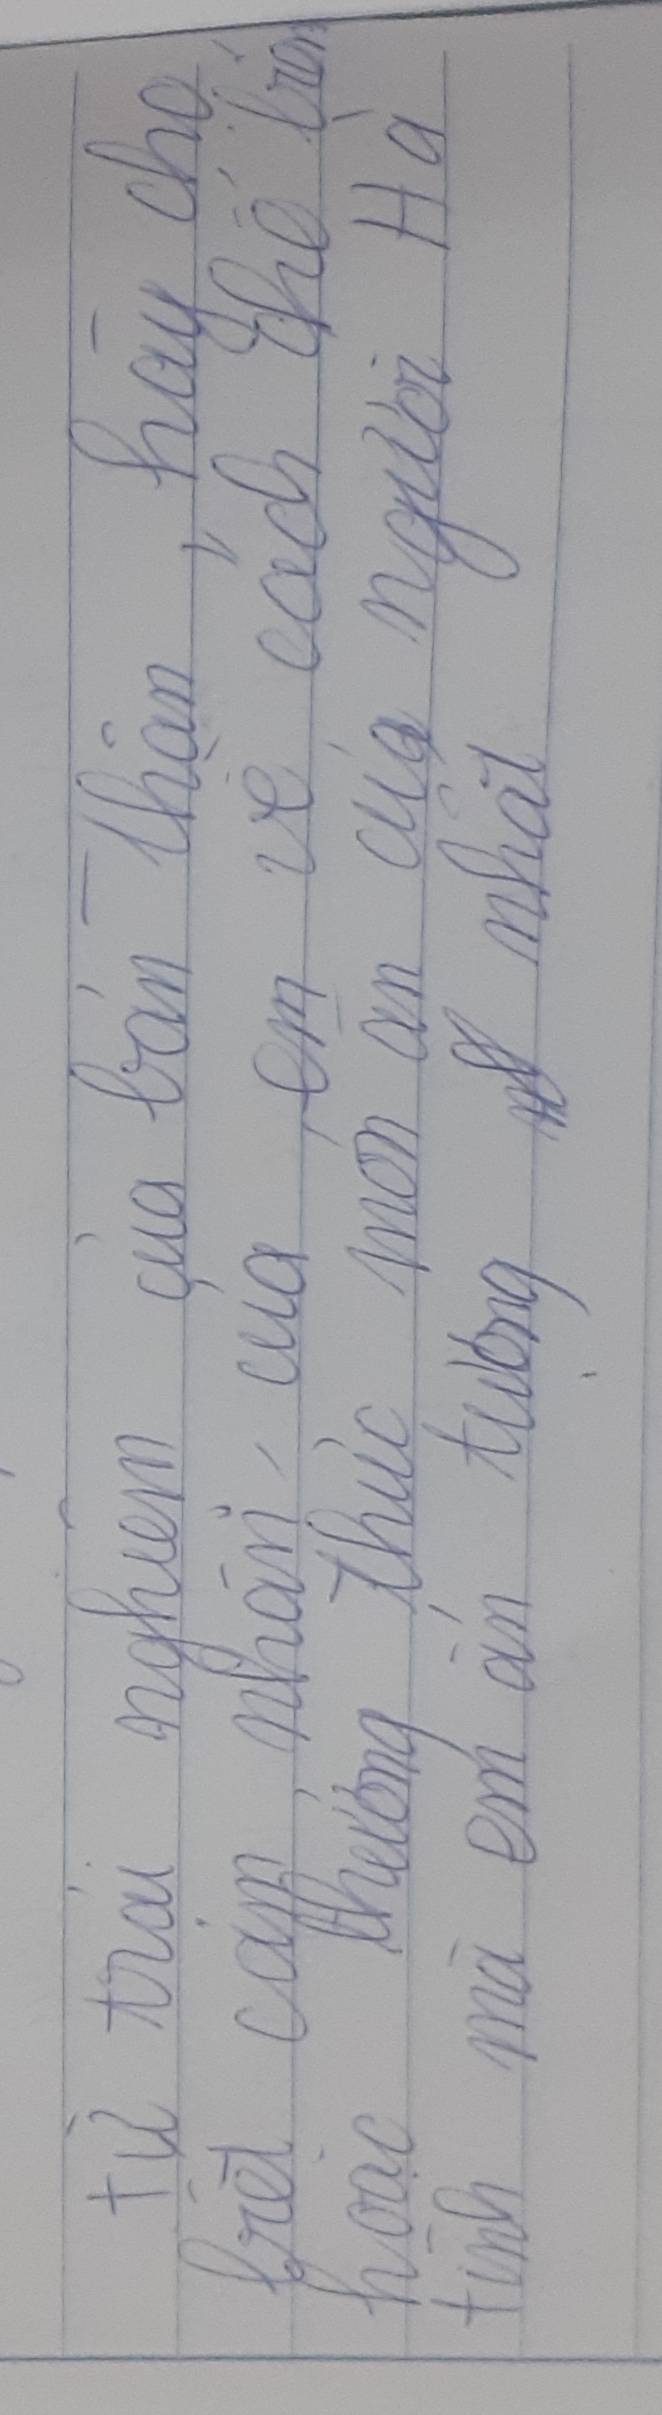 từ trải nghiệm của bản thân, hãy cho
biết cảm nhận của em về cách chế biến
hoặc thưởng thức món ăn của người Hà
tĩnh mà em ấn tượng nhất